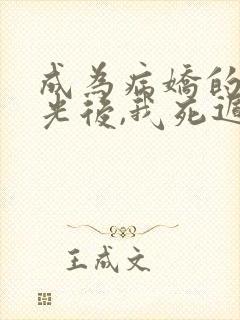 成為病嬌的
光後,我死遁
王成文